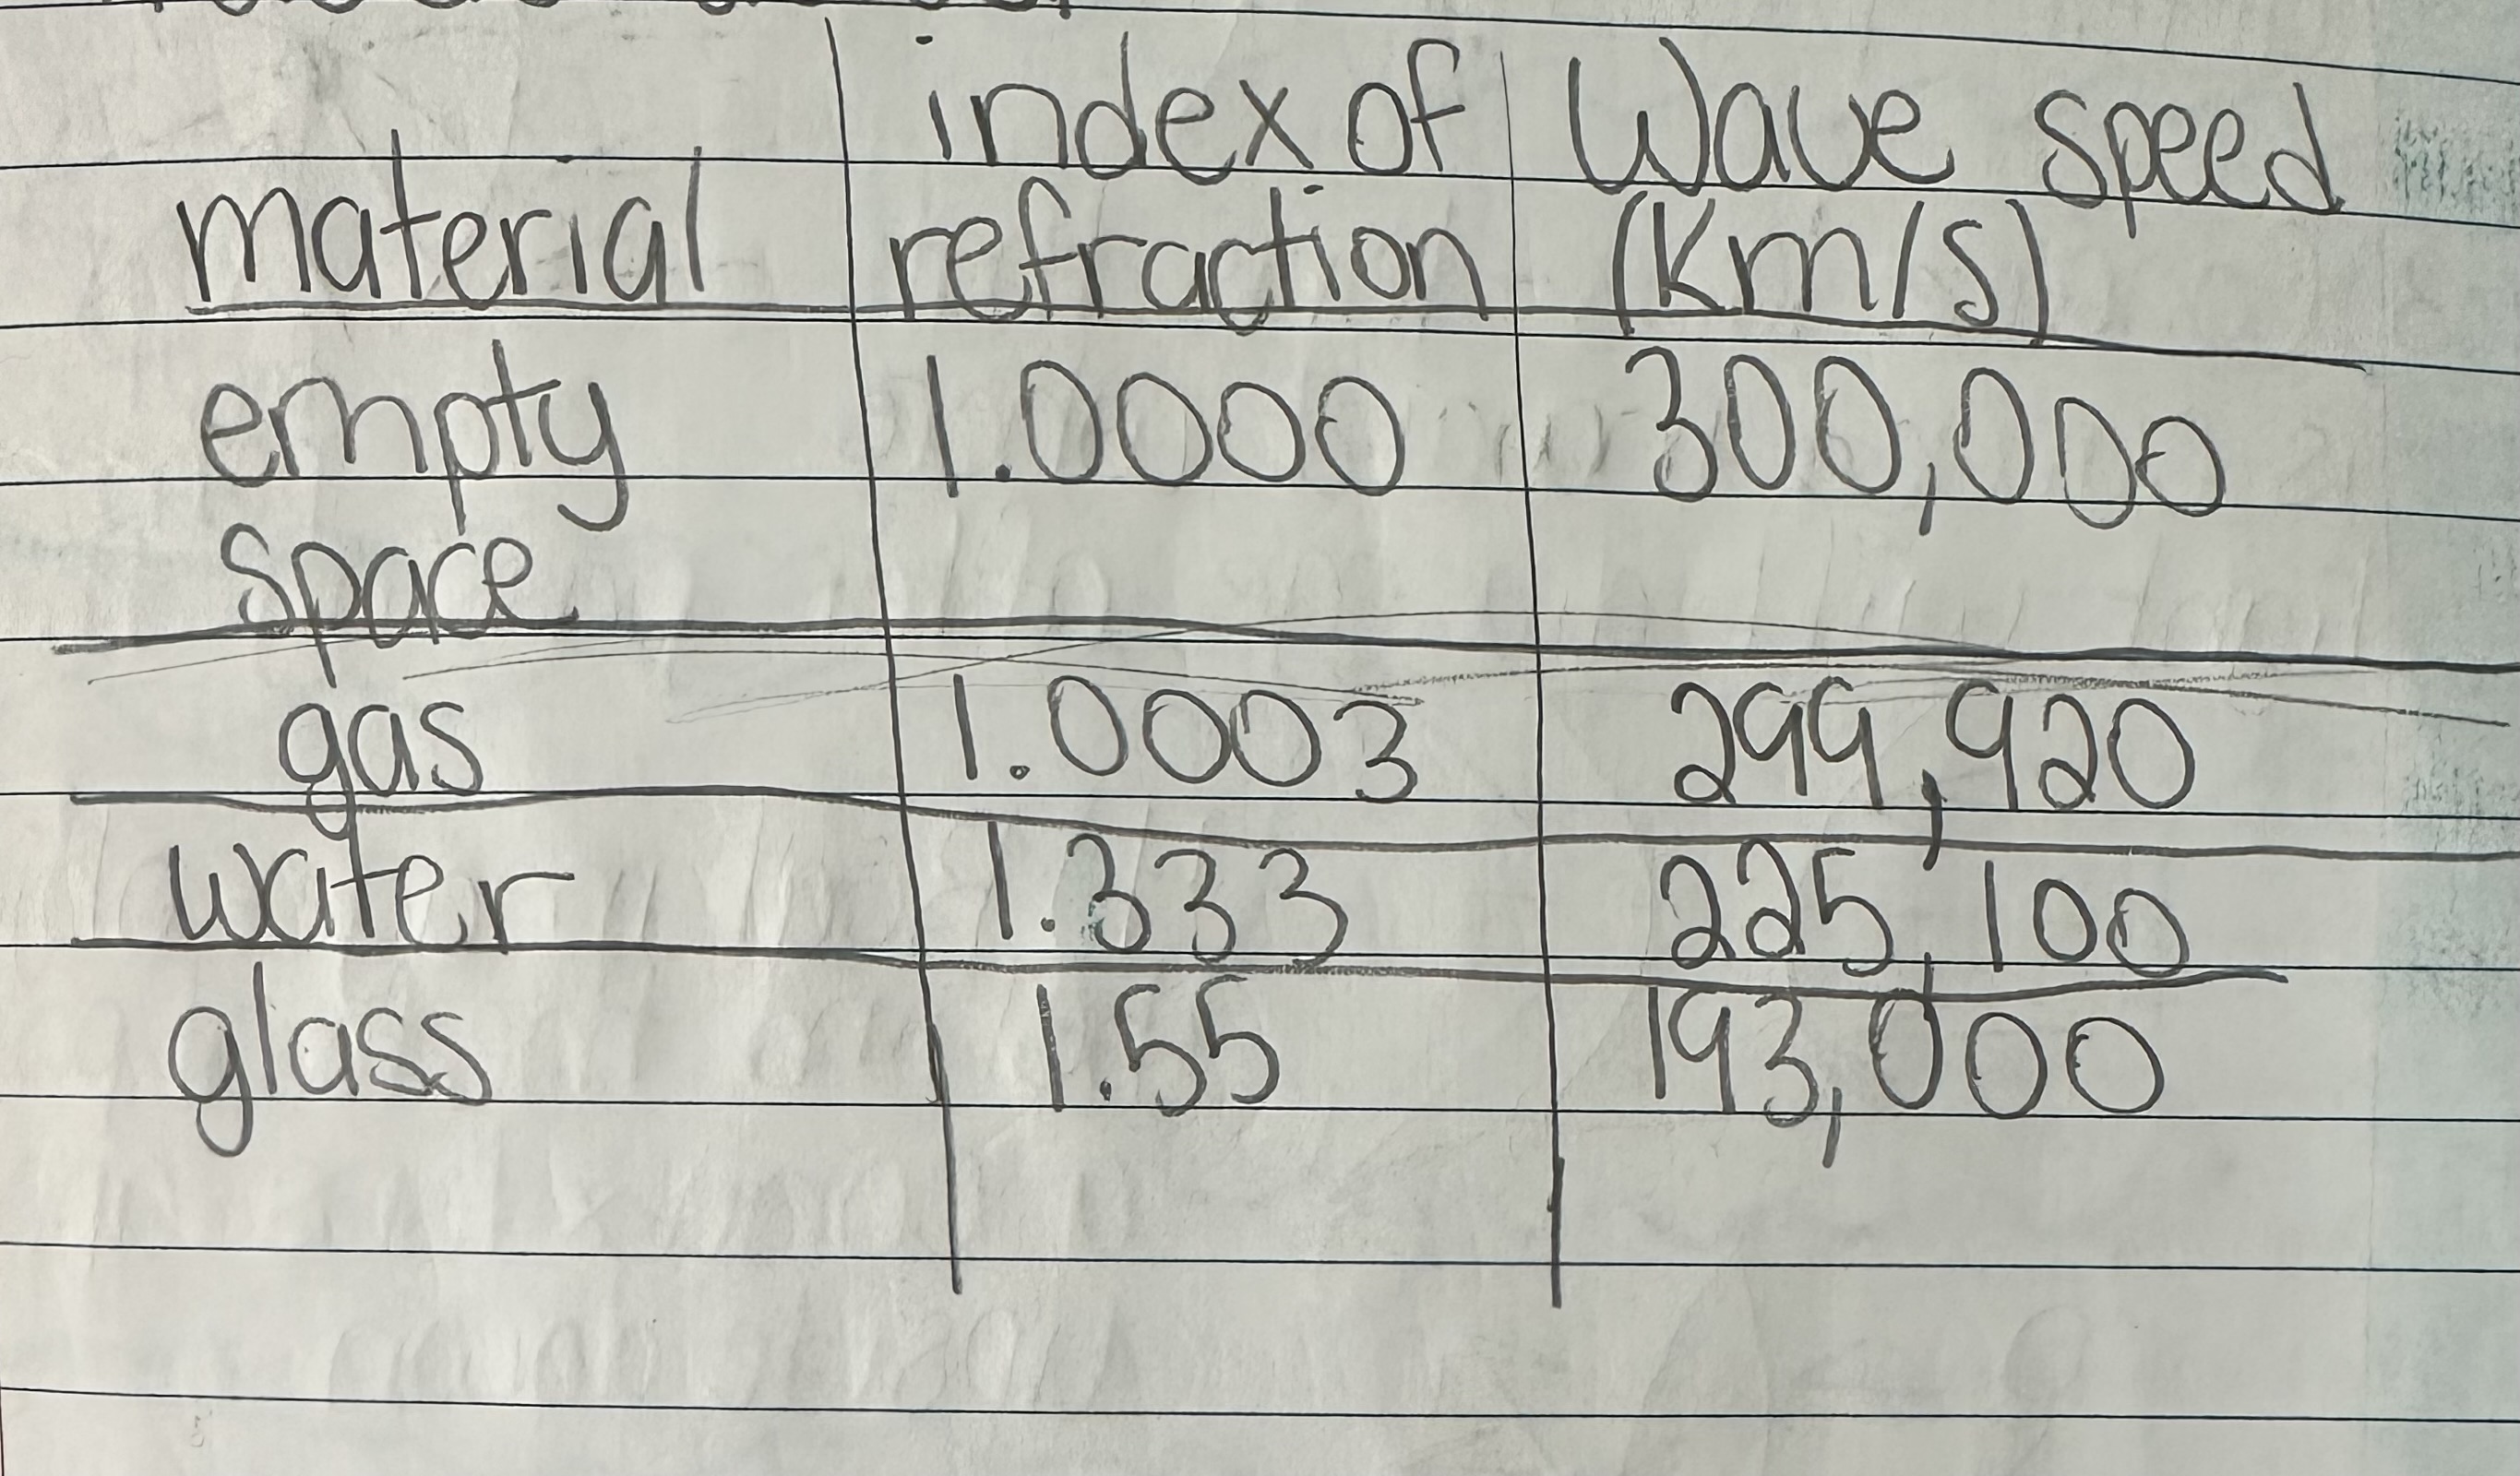 material | index of refraction | Wave speed (Km/s)
empty space | 1.0000 | 300,000
gas | 1.0003 | 299,920
water | 1.333 | 225,100
glass | 1.55 | 193,000